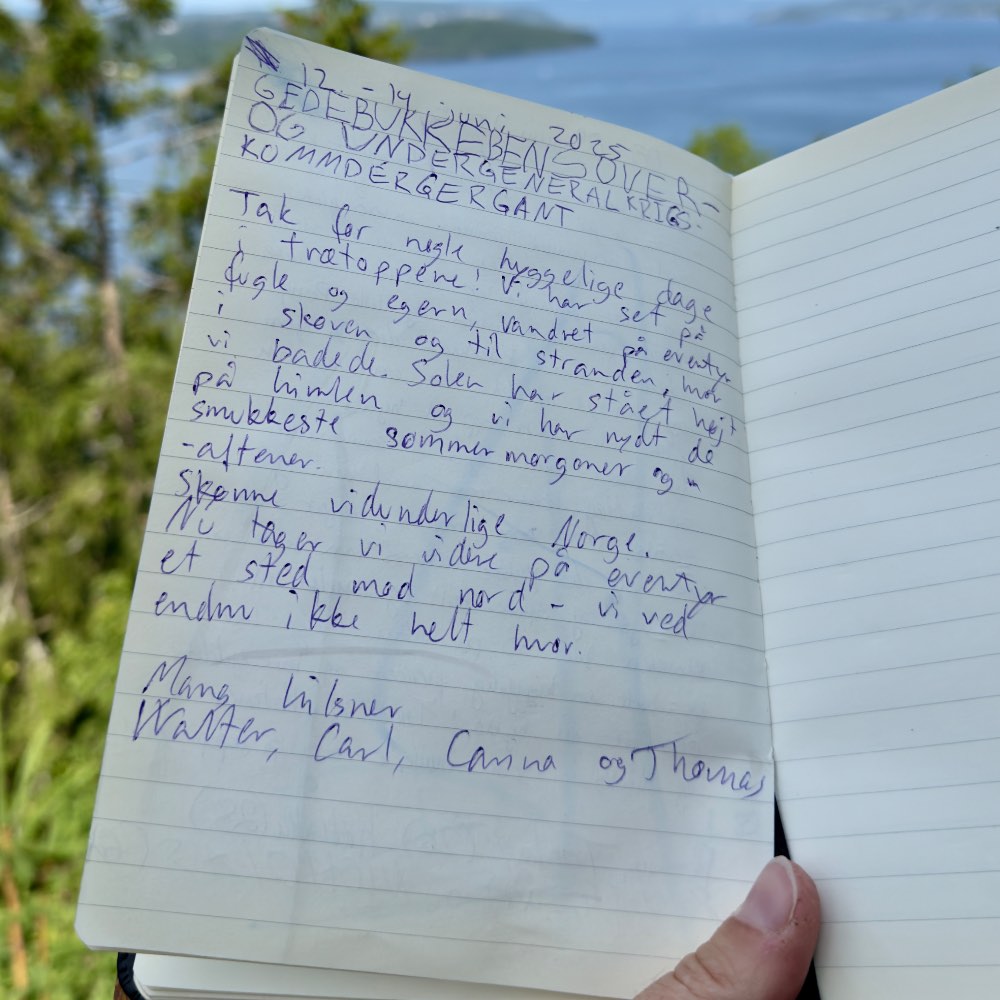 12. - 14. juni 2025
GEDEBUKKEBENSOVER-
OG UNDERGENERALKRIGS-
KOMMDERGERGANT
Tak for nogle hyggelige dage
i trætoppene! Vi har set på
fugle og egern, vandret på eventyr
i skoven og til stranden, hvor
vi badede. Solen har stået højt
på himlen og vi har nydt de
smukkeste sommermorgoner og
-aftener.
Skønne vidunderlige Norge.
Nu tager vi videre på eventyr
et sted mod nord - vi ved
endnu ikke helt hvor.
Mang hilsner
Walter, Carl, Canina og Thomas